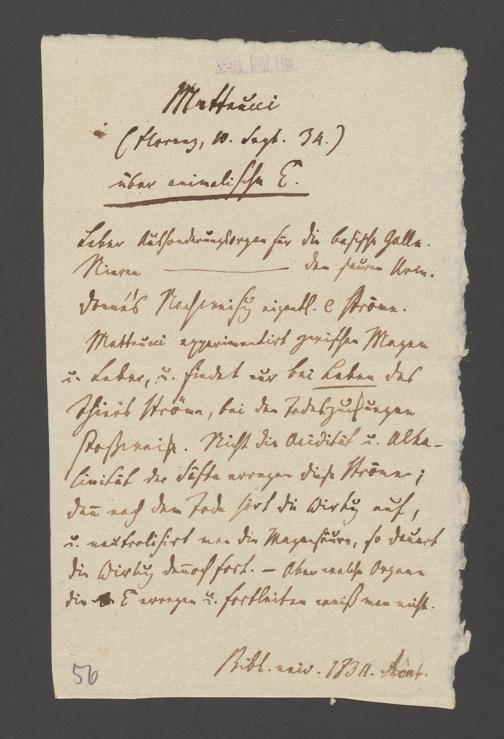 Matteucci
(Florenz, 10. Sept. 34.)
über animalische E.
Leber Aussonderungsorgan für die basische Galle.
Nieren ——— den sauren Urin.
Donné's Nachweisg eigentl. e Ströme.
Matteucci experimentirt zwischen Magen
u. Leber, u. findet nur bei Leben des
Thiers Ströme, bei den Todeszuckungen
stoßweise. Nicht die Acidität u. Alka-
linität der Säfte erregen diese Ströme;
denn nach dem Tode hört die Wirkg auf,
u. neutralisirt man die Magensäure, so dauert
die Wirkg dennoch fort. – Aber welche Organe
die E erregen u. fortleiten weiß man nicht.
Bibl. univ. 1834. Août.
56